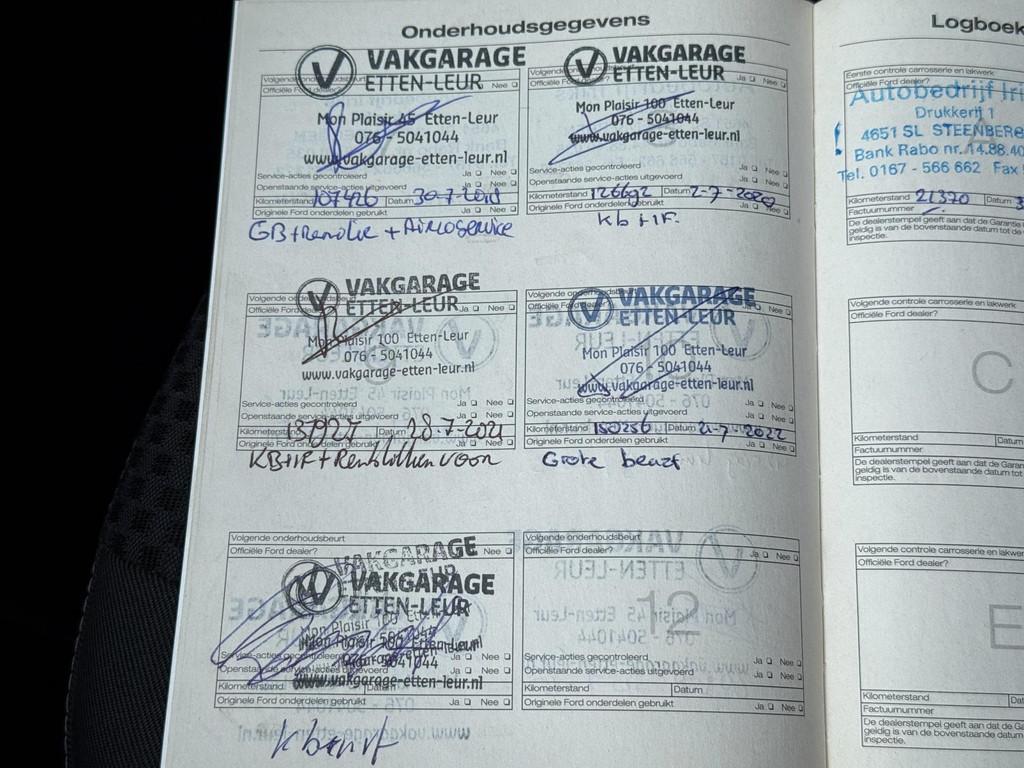 Onderhoudsgegevens
VAKGARAGE
ETTEN-LEUR
Nee
Mon Plaisir 45 Etten-Leur
076 - 5041044
www.vakgarage-etten-leur.nl
Service-acties gecontroleerd Ja Nee
Openstaande service-acties uitgevoerd Ja Nee
Kilometerstand 107426 Datum
Originele Ford onderdelen gebruikt Ja Nee
GB+Remolie + Aircoservice
VAKGARAGE
ETTEN-LEUR
Ja Nee
Mon Plaisir 100 Etten-Leur
076 - 5041044
www.vakgarage-etten-leur.nl
Service-acties gecontroleerd Ja Nee
Openstaande service-acties uitgevoerd Ja Nee
Kilometerstand 126692 Datum 2-7-2020
Originele Ford onderdelen gebruikt Ja Nee
kb + IF.
VAKGARAGE
ETTEN-LEUR
Ja Nee
Mon Plaisir 100 Etten-Leur
076 - 5041044
www.vakgarage-etten-leur.nl
Service-acties gecontroleerd Ja Nee
Openstaande service-acties uitgevoerd Ja Nee
Kilometerstand Datum 28-7-2021
Originele Ford onderdelen gebruikt Ja Nee
KB+IF + voor
VAKGARAGE
ETTEN-LEUR
Ja Nee
Mon Plaisir 100 Etten-Leur
076 - 5041044
www.vakgarage-etten-leur.nl
Service-acties gecontroleerd Ja Nee
Openstaande service-acties uitgevoerd Ja Nee
Kilometerstand 150256 Datum 21-7-2022
Originele Ford onderdelen gebruikt Ja Nee
Grote beurt
Volgende onderhoudsbeurt
Officiële Ford dealer? Nee
VAKGARAGE
VAKGARAGE
ETTEN-LEUR
Mon Plaisir 100 Etten-Leur
www.vakgarage-etten-leur.nl
Ja Nee
Ja Nee
Kilometerstand Datum
Originele Ford onderdelen gebruikt Ja Nee
Volgende onderhoudsbeurt
Officiële Ford dealer? Ja Nee
12
Service-acties gecontroleerd Ja Nee
Openstaande service-acties uitgevoerd Ja Nee
Kilometerstand Datum
Originele Ford onderdelen gebruikt Ja Nee
Logboek
Eerste controle carrosserie en lakwerk
Officiële Ford dealer?
Autobedrijf Iri
Drukkerij 1
4651 SL STEENBERG
Bank Rabo nr. 14.88.40
Tel. 0167 - 566 662 Fax
Kilometerstand 21370 Datum
Factuurnummer
De dealerstempel geeft aan dat de Garantie
geldig is van de bovenstaande datum tot de
inspectie.
Volgende controle carrosserie en lakwerk
Officiële Ford dealer?
C
Kilometerstand Datum
Factuurnummer
De dealerstempel geeft aan dat de Garan
geldig is van de bovenstaande datum tot
inspectie.
Volgende controle carrosserie en lakwer
Officiële Ford dealer?
E
Kilometerstand Dat
Factuurnummer
De dealerstempel geeft aan dat de Garan
geldig is van de bovenstaande datum to
inspectie.